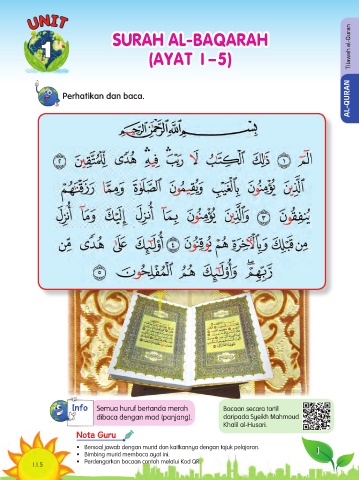 UNIT
1
SURAH AL-BAQARAH
(AYAT 1–5)
Tilawah al-Quran
AL-QURAN
Perhatikan dan baca.
بِسْمِ اللَّهِ الرَّحْمَٰنِ الرَّحِيمِ
الٓمٓ ١ ذَٰلِكَ الْكِتَٰبُ لَا رَيْبَ فِيهِ هُدًى لِّلْمُتَّقِينَ ٢
الَّذِينَ يُؤْمِنُونَ بِالْغَيْبِ وَيُقِيمُونَ الصَّلَوٰةَ وَمِمَّا رَزَقْنَٰهُمْ
يُنفِقُونَ ٣ وَالَّذِينَ يُؤْمِنُونَ بِمَآ أُنزِلَ إِلَيْكَ وَمَآ أُنزِلَ
مِن قَبْلِكَ وَبِالْآخِرَةِ هُمْ يُوقِنُونَ ٤ أُولَٰٓئِكَ عَلَىٰ هُدًى مِّن
رَّبِّهِمْ وَأُولَٰٓئِكَ هُمُ الْمُفْلِحُونَ ٥
Info
Semua huruf bertanda merah
dibaca dengan mad (panjang).
Bacaan secara tartil
daripada Syeikh Mahmoud
Khalil al-Husari.
Nota Guru
• Bersoal jawab dengan murid dan kaitkannya dengan tajuk pelajaran.
• Bimbing murid membaca ayat ini.
• Perdengarkan bacaan contoh melalui Kod QR.
1.1.5
1